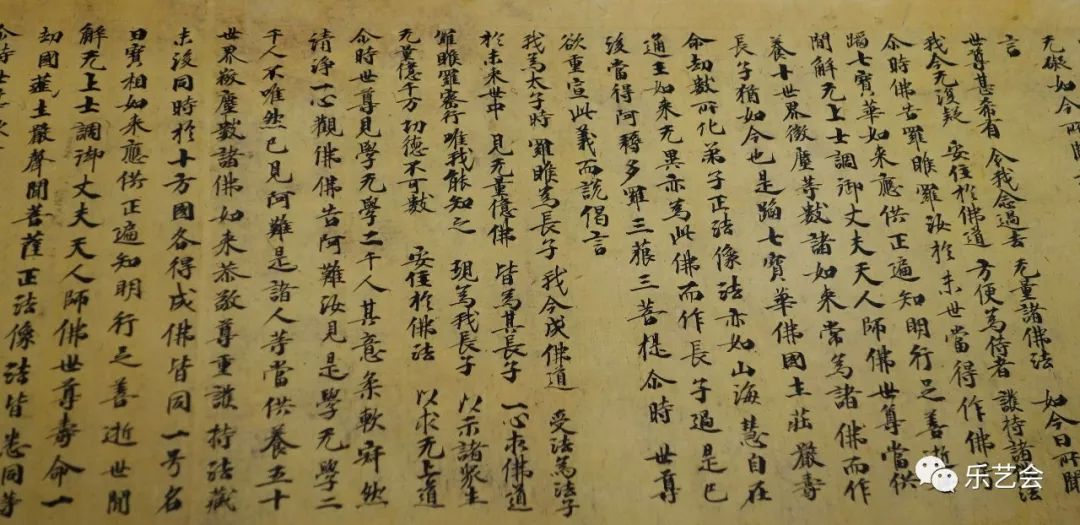 无礙如今所聞
言
世尊甚希有 令我念過去 无量諸佛法 如今日所聞
我今无復疑 安住於佛道 方便為侍者 護持諸佛法
尒時佛告羅睺羅汝於未世當得作佛号
蹈七寶華如来應供正遍知明行足善逝
間解无上士調御丈夫天人師佛世尊當供
養十世界微塵等數諸如来常為諸佛而作
長子猶如今也是蹈七寶華佛國土莊嚴壽
命劫數所化弟子正法像法亦如山海慧自在
通王如来无異亦為此佛而作長子過是已
後當得阿耨多羅三藐三菩提尒時世尊
欲重宣此義而說偈言
我為太子時 羅睺為長子 我今成佛道 受法為法子
於未来世中 見无量億佛 皆為其長子 一心求佛道
羅睺羅密行 唯我能知之 現為我長子 以示諸衆生
无量億千万 功德不可數 安住於佛法 以求无上道
尒時世尊見學无學二千人其意柔軟寂然
清淨一心觀佛佛告阿難汝見是學无學二
千人不唯然已見阿難是諸人等當供養五十
世界微塵數諸佛如来恭敬尊重護持法藏
末後同時於十方國各得成佛皆同一号名
曰寶相如来應供正遍知明行足善逝世間
解无上士調御丈夫天人師佛世尊壽命一
劫國莊土嚴聲聞菩薩正法像法皆悉同等
尒時世
乐艺会